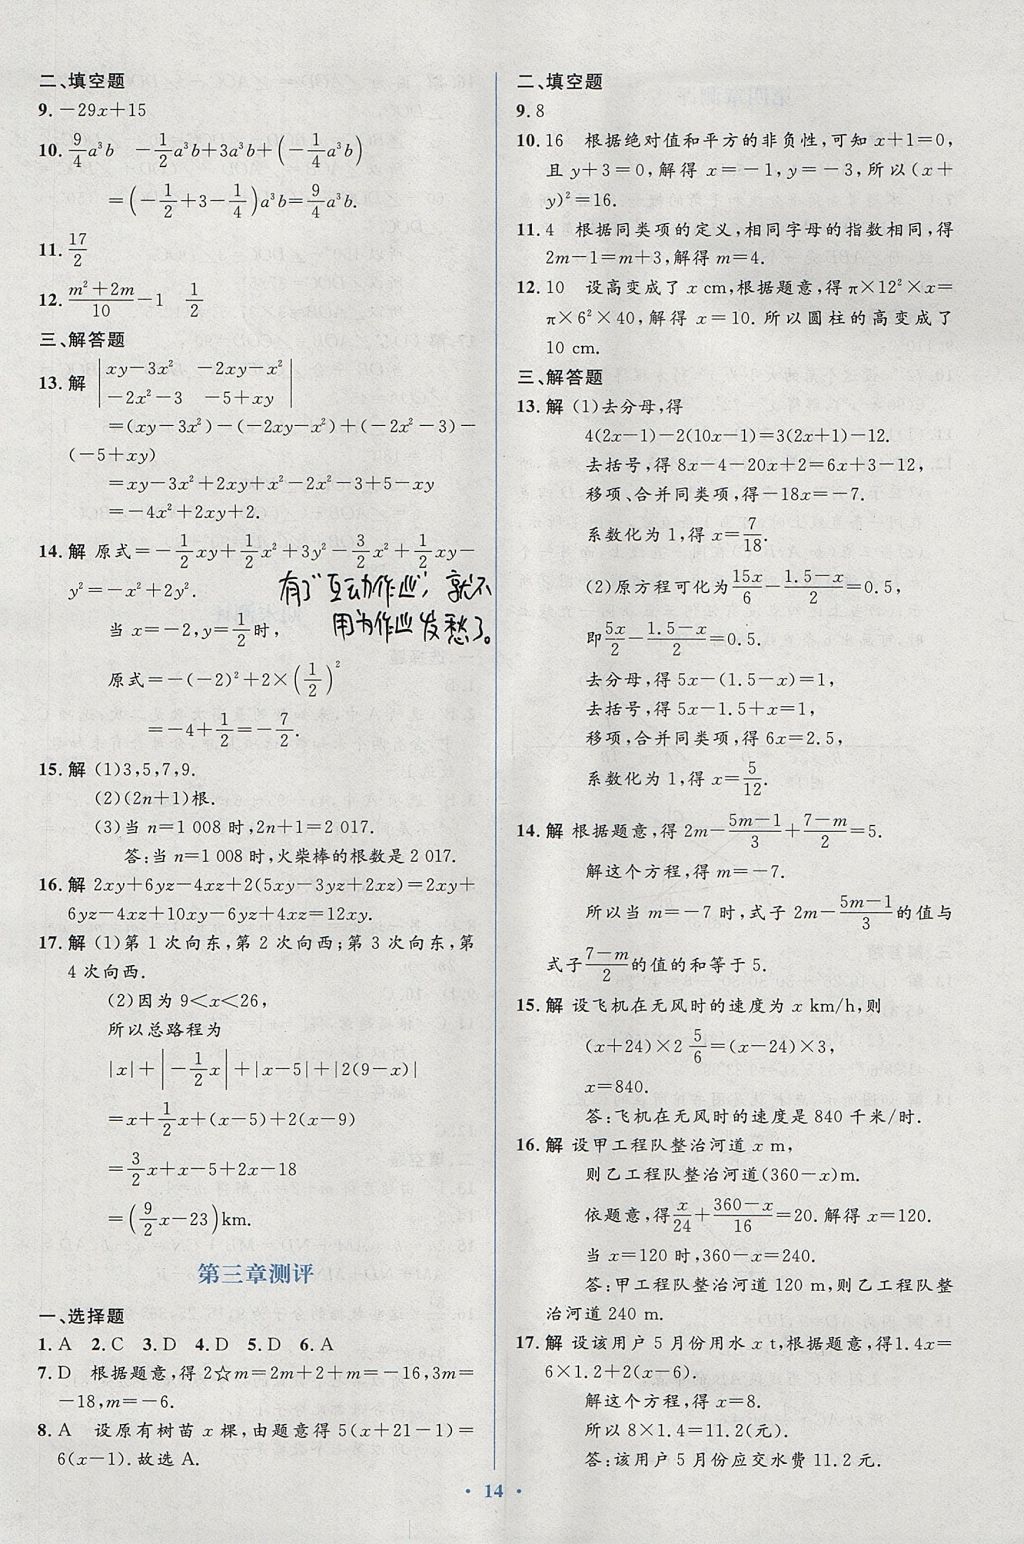 二、填空题
9. －29x＋15
10. 9/4a³b　－1/2a³b＋3a³b＋(－1/4a³b)
＝(－1/2＋3－1/4)a³b＝9/4a³b.
11. 17/2
12. (m²＋2m)/10－1　1/2
三、解答题
13. 解 |xy－3x²　－2xy－x²|
|－2x²－3　－5＋xy|
＝(xy－3x²)－(－2xy－x²)＋(－2x²－3)－
(－5＋xy)
＝xy－3x²＋2xy＋x²－2x²－3＋5－xy
＝－4x²＋2xy＋2.
14. 解 原式＝－1/2xy＋1/2x²＋3y²－3/2x²＋1/2xy－
y²＝－x²＋2y².
有了“互动作业”，就不
用为作业发愁了。
当 x＝－2,y＝1/2时,
原式＝－(－2)²＋2×(1/2)²
＝－4＋1/2＝－7/2.
15. 解 (1)3,5,7,9.
(2)(2n＋1)根.
(3)当 n＝1 008 时,2n＋1＝2 017.
答:当 n＝1 008 时,火柴棒的根数是 2 017.
16. 解 2xy＋6yz－4xz＋2(5xy－3yz＋2xz)＝2xy＋
6yz－4xz＋10xy－6yz＋4xz＝12xy.
17. 解 (1)第 1 次向东,第 2 次向西;第 3 次向东,第
4 次向西.
(2)因为 9＜x＜26,
所以总路程为
|x|＋|－1/2x|＋|x－5|＋|2(9－x)|
＝x＋1/2x＋(x－5)＋2(x－9)
＝3/2x＋x－5＋2x－18
＝(9/2x－23)km.
第三章测评
一、选择题
1. A　2. C　3. D　4. D　5. D　6. A
7. D　根据题意,得 2☆m＝2m＋2＋m＝－16,3m＝
－18,m＝－6.
8. A　设原有树苗 x 棵,由题意得 5(x＋21－1)＝
6(x－1).故选 A.
二、填空题
9. 8
10. 16　根据绝对值和平方的非负性,可知 x＋1＝0,
且 y＋3＝0,解得 x＝－1,y＝－3,所以(x＋
y)²＝16.
11. 4　根据同类项的定义,相同字母的指数相同,得
2m－1＝m＋3,解得 m＝4.
12. 10　设高变成了 x cm,根据题意,得 π×12²×x＝
π×6²×40,解得 x＝10.所以圆柱的高变成了
10 cm.
三、解答题
13. 解 (1)去分母,得
4(2x－1)－2(10x－1)＝3(2x＋1)－12.
去括号,得 8x－4－20x＋2＝6x＋3－12,
移项、合并同类项,得－18x＝－7.
系数化为 1,得 x＝7/18.
(2)原方程可化为15x/6－(1.5－x)/2＝0.5,
即5x/2－(1.5－x)/2＝0.5.
去分母,得 5x－(1.5－x)＝1,
去括号,得 5x－1.5＋x＝1,
移项,合并同类项,得 6x＝2.5,
系数化为 1,得 x＝5/12.
14. 解 根据题意,得 2m－(5m－1)/3＋(7－m)/2＝5.
解这个方程,得 m＝－7.
所以当 m＝－7 时,式子 2m－(5m－1)/3的值与
式子(7－m)/2的值的和等于 5.
15. 解 设飞机在无风时的速度为 x km/h,则
(x＋24)×2 5/6＝(x－24)×3,
x＝840.
答:飞机在无风时的速度是 840 千米/时.
16. 解 设甲工程队整治河道 x m,
则乙工程队整治河道(360－x)m.
依题意,得x/24＋(360－x)/16＝20.解得 x＝120.
当 x＝120 时,360－x＝240.
答:甲工程队整治河道 120 m,则乙工程队整
治河道 240 m.
17. 解 设该用户 5 月份用水 x t,根据题意,得1.4x＝
6×1.2＋2(x－6).
解这个方程,得 x＝8.
所以 8×1.4＝11.2(元).
答:该用户 5 月份应交水费 11.2 元.
• 14 •